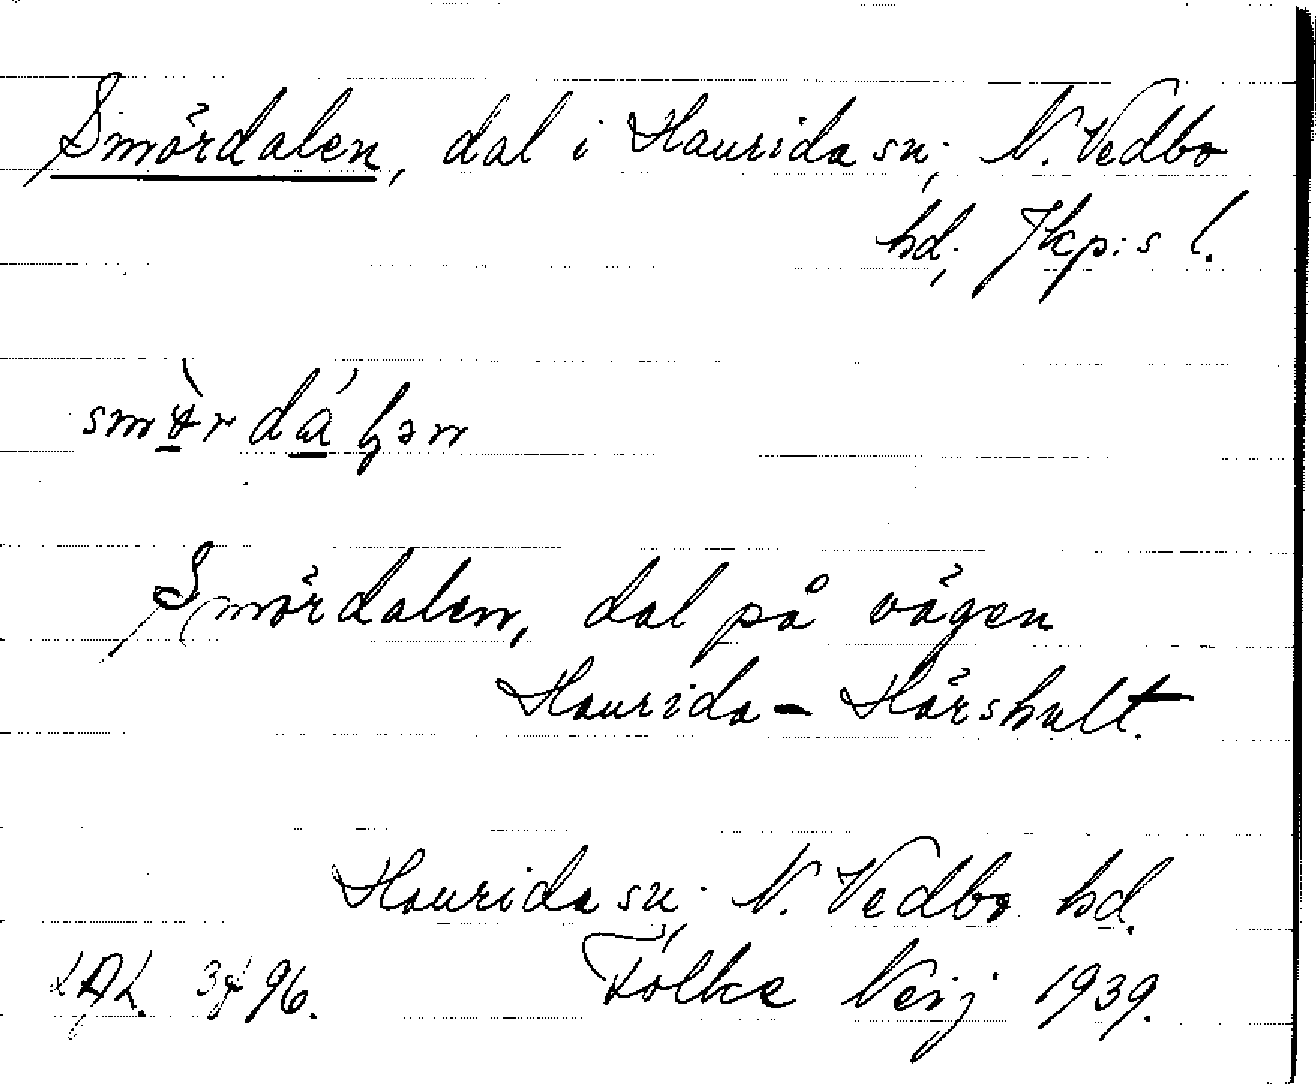 Smördalen, dal i Haurida sn; N. Vedbo
hd; Jkp:s l.
Smördalen, dal på vägen
Haurida - Hörshult.
Haurida sn; N. Vedbo hd.
Folke Neij 1939.